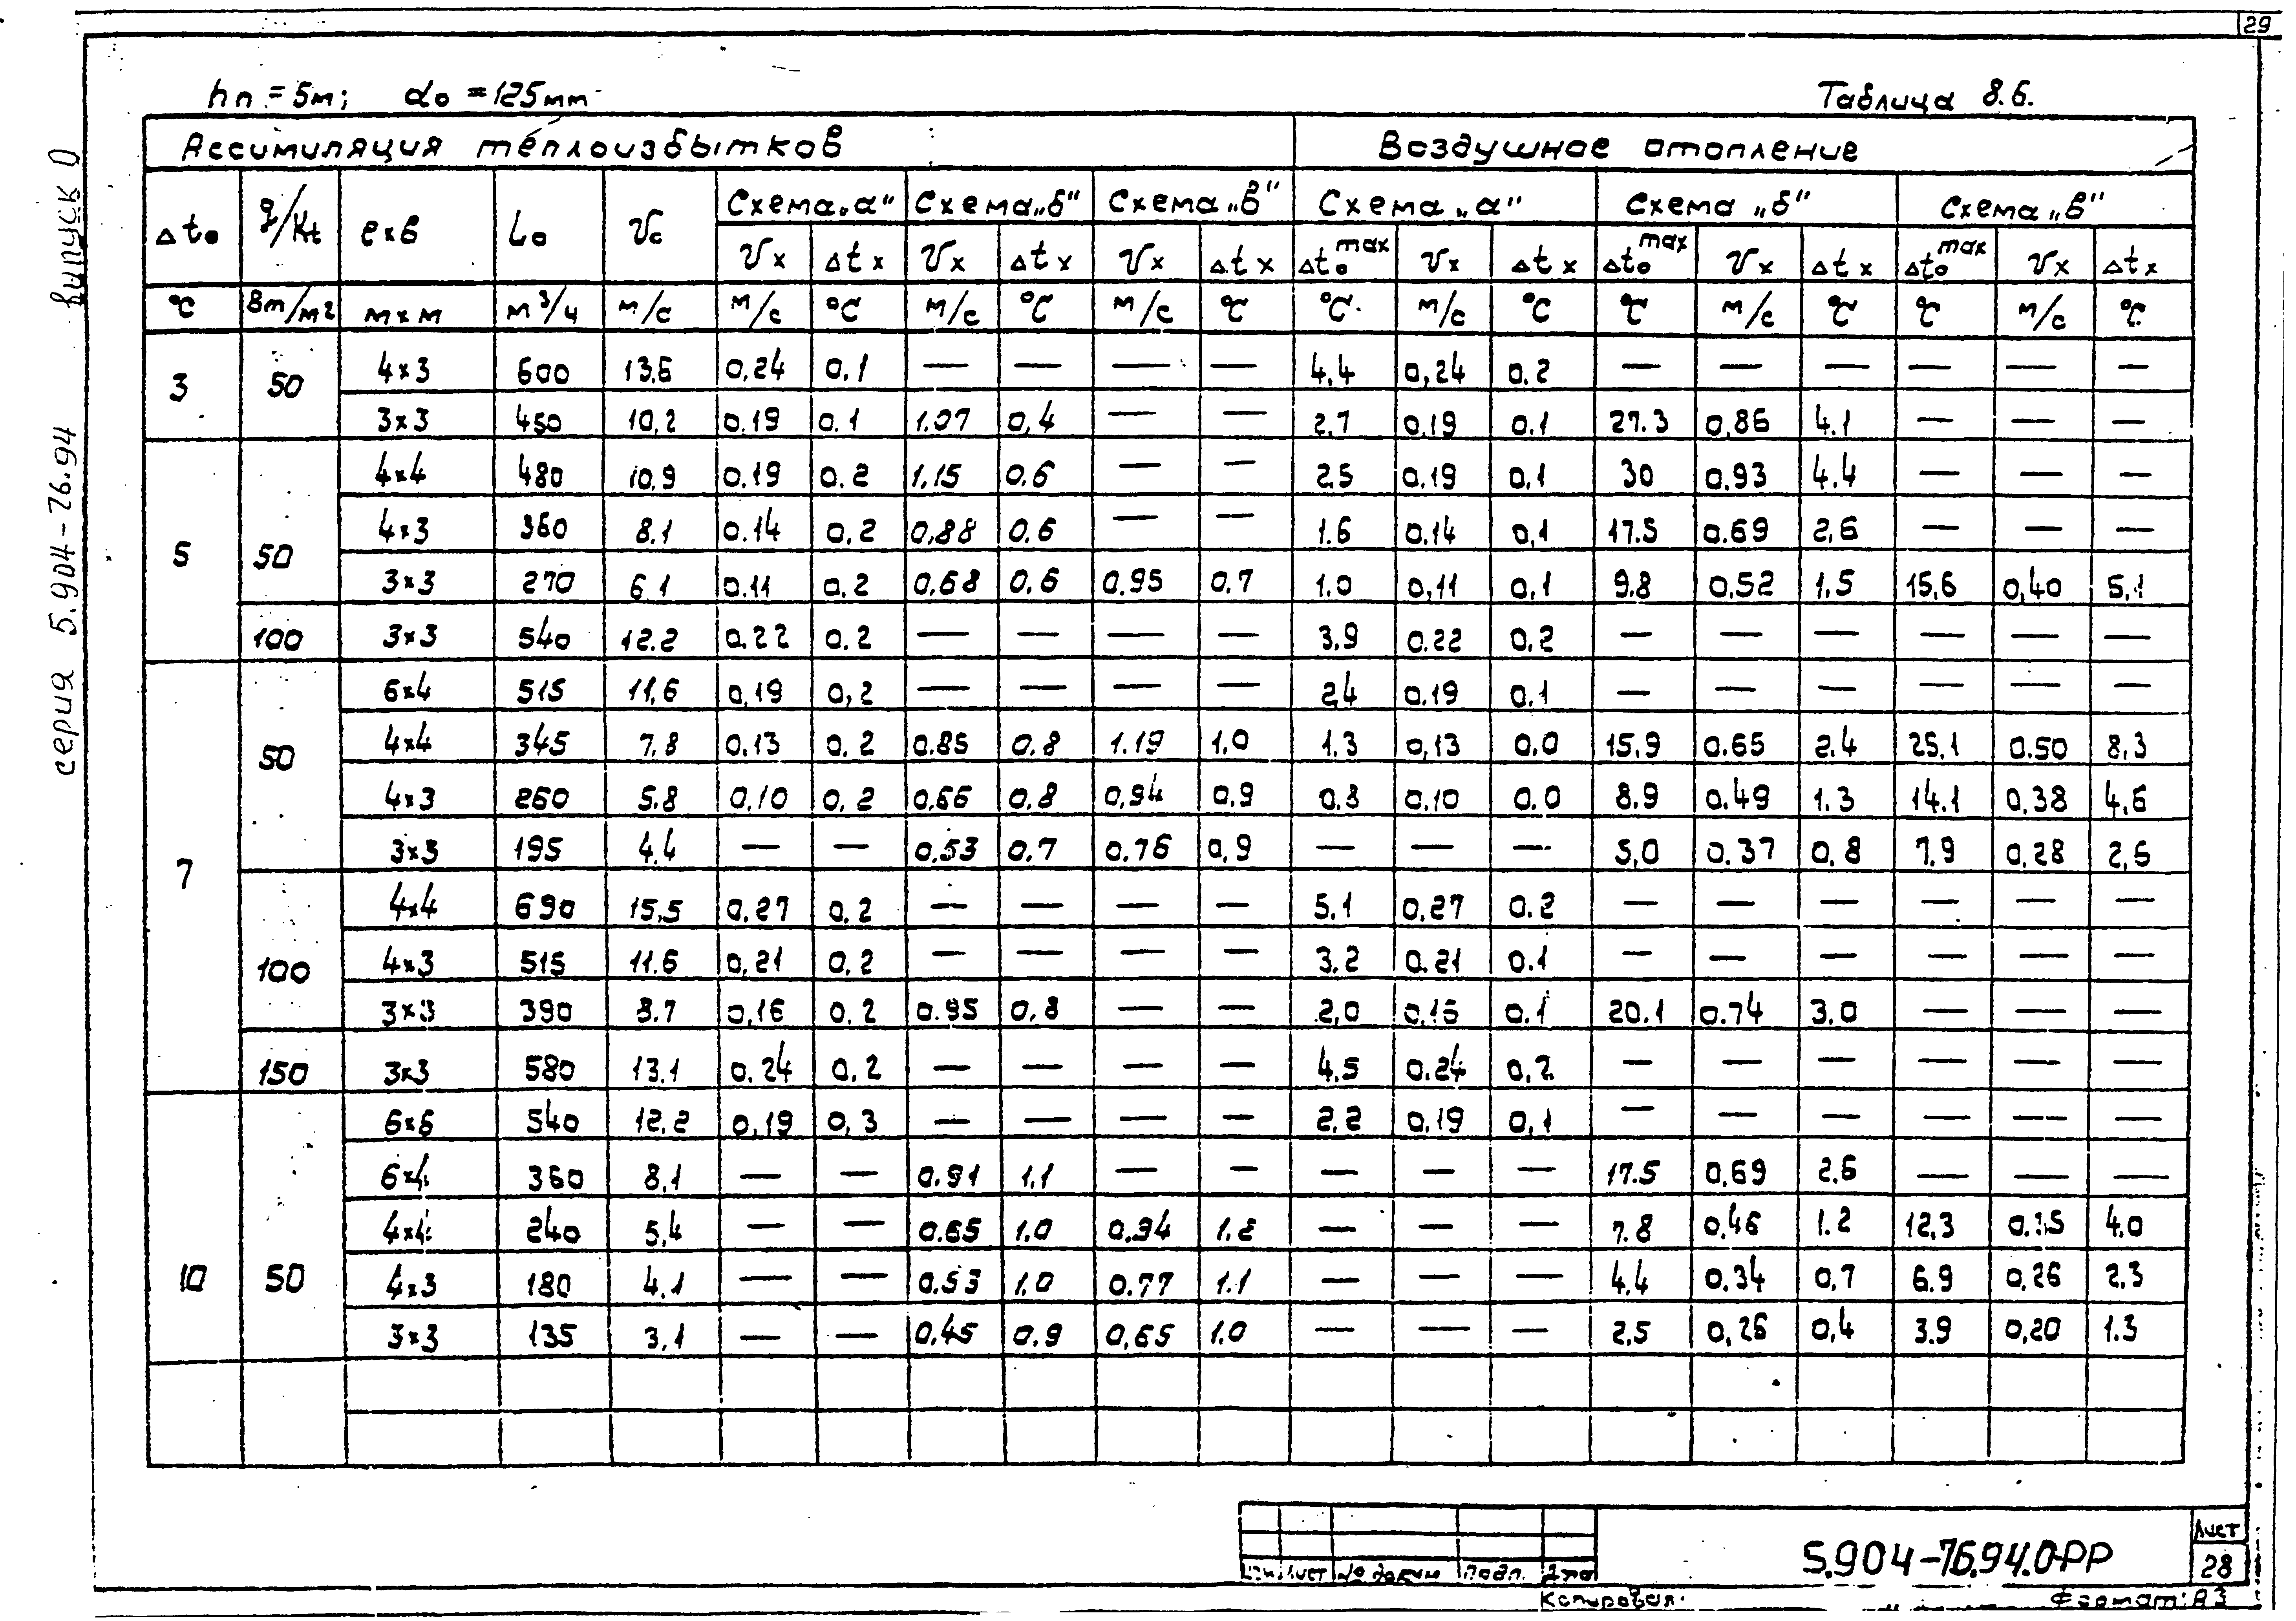 29
hп = 5м; do = 125мм
Таблица 8.6.
серия 5.904-76.94 выпуск 0
Ассимиляция теплоизбытков | Воздушное отопление
Δto | q/Kt | l×в | Lo | Vc | Схема „а" | Схема „б" | Схема „в" | Схема „а" | Схема „б" | Схема „в"
Vx | Δtx | Vx | Δtx | Vx | Δtx | Δto max | Vx | Δtx | Δto max | Vx | Δtx | Δto max | Vx | Δtx
°C | Вт/м² | м×м | м³/ч | м/с | м/с | °C | м/с | °C | м/с | °C | °C | м/с | °C | °C | м/с | °C | °C | м/с | °C
3 | 50 | 4×3 | 600 | 13,6 | 0,24 | 0,1 | — | — | — | — | 4,4 | 0,24 | 0.2 | — | — | — | — | — | —
3×3 | 450 | 10,2 | 0.19 | 0.1 | 1.07 | 0,4 | — | — | 2,7 | 0,19 | 0.1 | 27.3 | 0,86 | 4.1 | — | — | —
5 | 50 | 4×4 | 480 | 10,9 | 0.19 | 0.2 | 1,15 | 0,6 | — | — | 2.5 | 0,19 | 0,1 | 30 | 0.93 | 4.4 | — | — | —
4×3 | 360 | 8.1 | 0.14 | 0,2 | 0,88 | 0,6 | — | — | 1.6 | 0.14 | 0,1 | 17.5 | 0.69 | 2,6 | — | — | —
3×3 | 270 | 6.1 | 0.11 | 0,2 | 0,68 | 0,6 | 0.95 | 0,7 | 1.0 | 0,11 | 0,1 | 9.8 | 0,52 | 1,5 | 15,6 | 0,40 | 5,1
100 | 3×3 | 540 | 12.2 | 0.22 | 0.2 | — | — | — | — | 3.9 | 0.22 | 0.2 | — | — | — | — | — | —
7 | 50 | 6×4 | 515 | 11,6 | 0,19 | 0,2 | — | — | — | — | 2,4 | 0.19 | 0.1 | — | — | — | — | — | —
4×4 | 345 | 7,8 | 0,13 | 0,2 | 0.85 | 0.8 | 1.19 | 1,0 | 1.3 | 0,13 | 0.0 | 15,9 | 0.65 | 2.4 | 25,1 | 0.50 | 8,3
4×3 | 260 | 5.8 | 0,10 | 0,2 | 0,66 | 0,8 | 0,94 | 0,9 | 0.8 | 0.10 | 0.0 | 8.9 | 0.49 | 1.3 | 14.1 | 0,38 | 4,6
3×3 | 195 | 4.4 | — | — | 0,53 | 0.7 | 0.76 | 0,9 | — | — | — | 5,0 | 0.37 | 0,8 | 7.9 | 0,28 | 2,6
100 | 4×4 | 690 | 15,5 | 0.27 | 0.2 | — | — | — | — | 5.1 | 0,27 | 0.2 | — | — | — | — | — | —
4×3 | 515 | 11.6 | 0,21 | 0,2 | — | — | — | — | 3,2 | 0.21 | 0.1 | — | — | — | — | — | —
3×3 | 390 | 8.7 | 0,16 | 0.2 | 0.95 | 0,8 | — | — | 2,0 | 0,16 | 0.1 | 20.1 | 0.74 | 3.0 | — | — | —
150 | 3×3 | 580 | 13.1 | 0.24 | 0,2 | — | — | — | — | 4,5 | 0.24 | 0,2 | — | — | — | — | — | —
10 | 50 | 6×6 | 540 | 12,2 | 0,19 | 0,3 | — | — | — | — | 2.2 | 0,19 | 0,1 | — | — | — | — | — | —
6×4 | 360 | 8,1 | — | — | 0.91 | 1,1 | — | — | — | — | — | 17.5 | 0,69 | 2,6 | — | — | —
4×4 | 240 | 5,4 | — | — | 0.65 | 1.0 | 0,94 | 1.2 | — | — | — | 7.8 | 0,46 | 1.2 | 12,3 | 0.35 | 4.0
4×3 | 180 | 4.1 | — | — | 0,53 | 1.0 | 0.77 | 1.1 | — | — | — | 4,4 | 0.34 | 0,7 | 6.9 | 0,26 | 2,3
3×3 | 135 | 3,1 | — | — | 0,45 | 0.9 | 0,65 | 1.0 | — | — | — | 2,5 | 0,26 | 0,4 | 3.9 | 0,20 | 1.3
Изм Лист № докум Подп. Дата
5.904-76.94.0-РР
Лист
28
Копировал
Формат А3